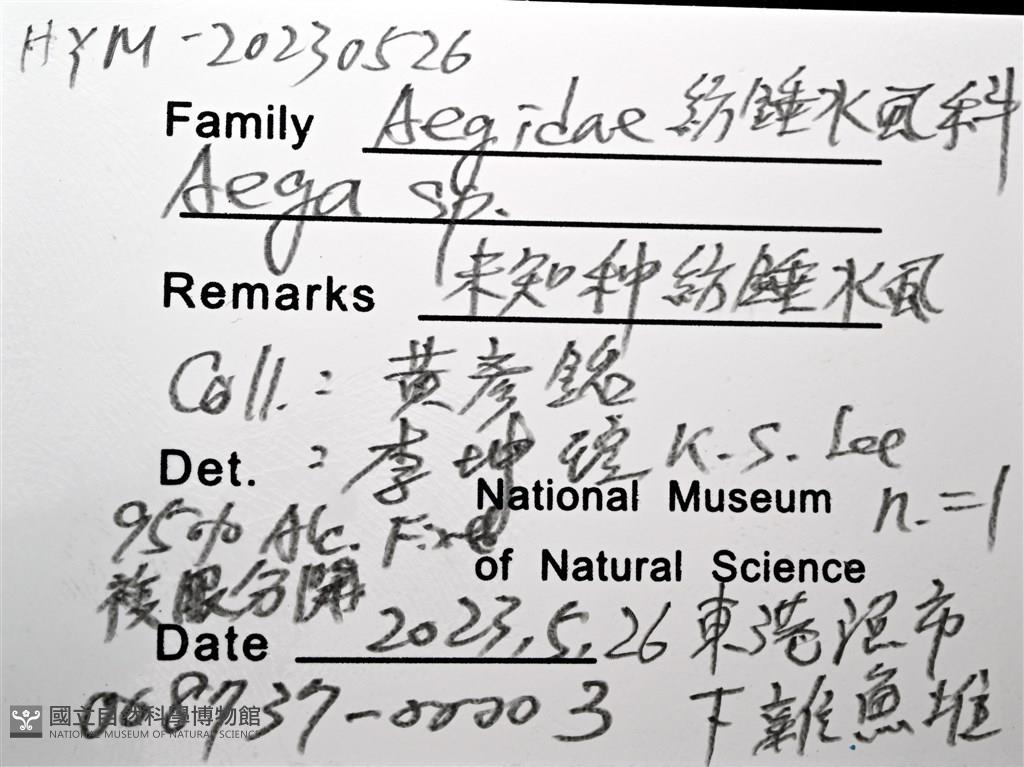 HYM-20230526
Family Aegidae 紡錘水虱科
Aega sp.
Remarks 未知种紡錘水虱
Coll.: 黃彥銘
Det. : 李坤瑄 K.S. Lee
National Museum n.=1
95% Alc. Fixed
of Natural Science
複眼分開
Date 2023.5.26 東港漁市
8737-00003 下雜魚堆
國立自然科學博物館
NATIONAL MUSEUM OF NATURAL SCIENCE